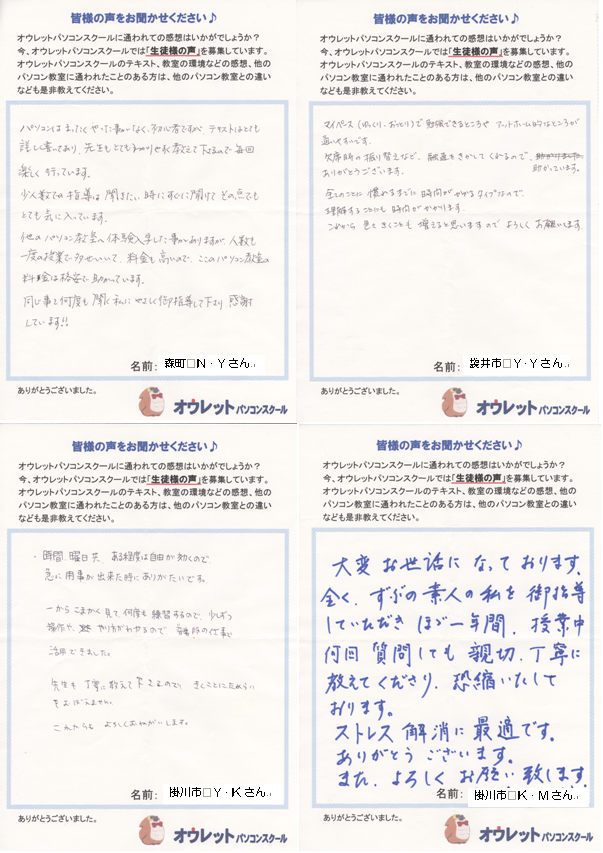 皆様の声をお聞かせください♪
オウレットパソコンスクールに通われての感想はいかがでしょうか?
今、オウレットパソコンスクールでは「生徒様の声」を募集しています。
オウレットパソコンスクールのテキスト、教室の環境などの感想、他の
パソコン教室に通われたことのある方は、他のパソコン教室との違い
なども是非教えてください。
パソコンはまったくやった事がなく、初心者ですが、テキストはとても
詳しく書いてあり、先生もとてもわかりやすく教えて下さるので毎回
楽しく行っています。
少人数での指導は聞きたい時にすぐに聞けてその点でも
とても気に入っています。
他のパソコン教室へ体験入学した事がありますが、人数も
一度の授業で多勢いて、料金も高いので、ここのパソコン教室の
料金は格安で助かっています。
同じ事を何度も聞く私にやさしく御指導して下さり感謝
しています!!
名前: 森町 N・Yさん
ありがとうございました。
オウレットパソコンスクール
皆様の声をお聞かせください♪
オウレットパソコンスクールに通われての感想はいかがでしょうか?
今、オウレットパソコンスクールでは「生徒様の声」を募集しています。
オウレットパソコンスクールのテキスト、教室の環境などの感想、他の
パソコン教室に通われたことのある方は、他のパソコン教室との違い
なども是非教えてください。
マイペース(ゆっくり、おっとり)で勉強できるところや アットホーム的なところが
通いやすいです。
欠席時の振り替えなど、融通をきかしてくれるので、
ありがとうございます。 助かっています。
全てのことに慣れるまでに時間がかかるタイプなので、
理解することにも時間がかかります。
これから 色々きくことも 増えると思いますので よろしくお願いします。
名前: 袋井市 Y・Yさん
ありがとうございました。
オウレットパソコンスクール
皆様の声をお聞かせください♪
オウレットパソコンスクールに通われての感想はいかがでしょうか?
今、オウレットパソコンスクールでは「生徒様の声」を募集しています。
オウレットパソコンスクールのテキスト、教室の環境などの感想、他の
パソコン教室に通われたことのある方は、他のパソコン教室との違い
なども是非教えてください。
・時間、曜日共、ある程度は自由が効くので
急に用事が出来た時にありがたいです。
一からこまかく見て、何度も練習するので、少しずつ
操作や、やり方がわかるので 普段の仕事で
活用できました。
先生も丁寧に教えて下さるので、きくことにためらい
をおぼえません。
これからも よろしくおねがいします。
名前: 掛川市 Y・Kさん
ありがとうございました。
オウレットパソコンスクール
皆様の声をお聞かせください♪
オウレットパソコンスクールに通われての感想はいかがでしょうか?
今、オウレットパソコンスクールでは「生徒様の声」を募集しています。
オウレットパソコンスクールのテキスト、教室の環境などの感想、他の
パソコン教室に通われたことのある方は、他のパソコン教室との違い
なども是非教えてください。
大変お世話になっております。
全く、ずぶの素人の私を御指導
していただきほぼ一年間、授業中
何回質問しても親切、丁寧に
教えてくださり、恐縮いたして
おります。
ストレス解消に最適です。
ありがとうございます。
また、よろしくお願い致します
名前: 掛川市 K・Mさん
ありがとうございました。
オウレットパソコンスクール